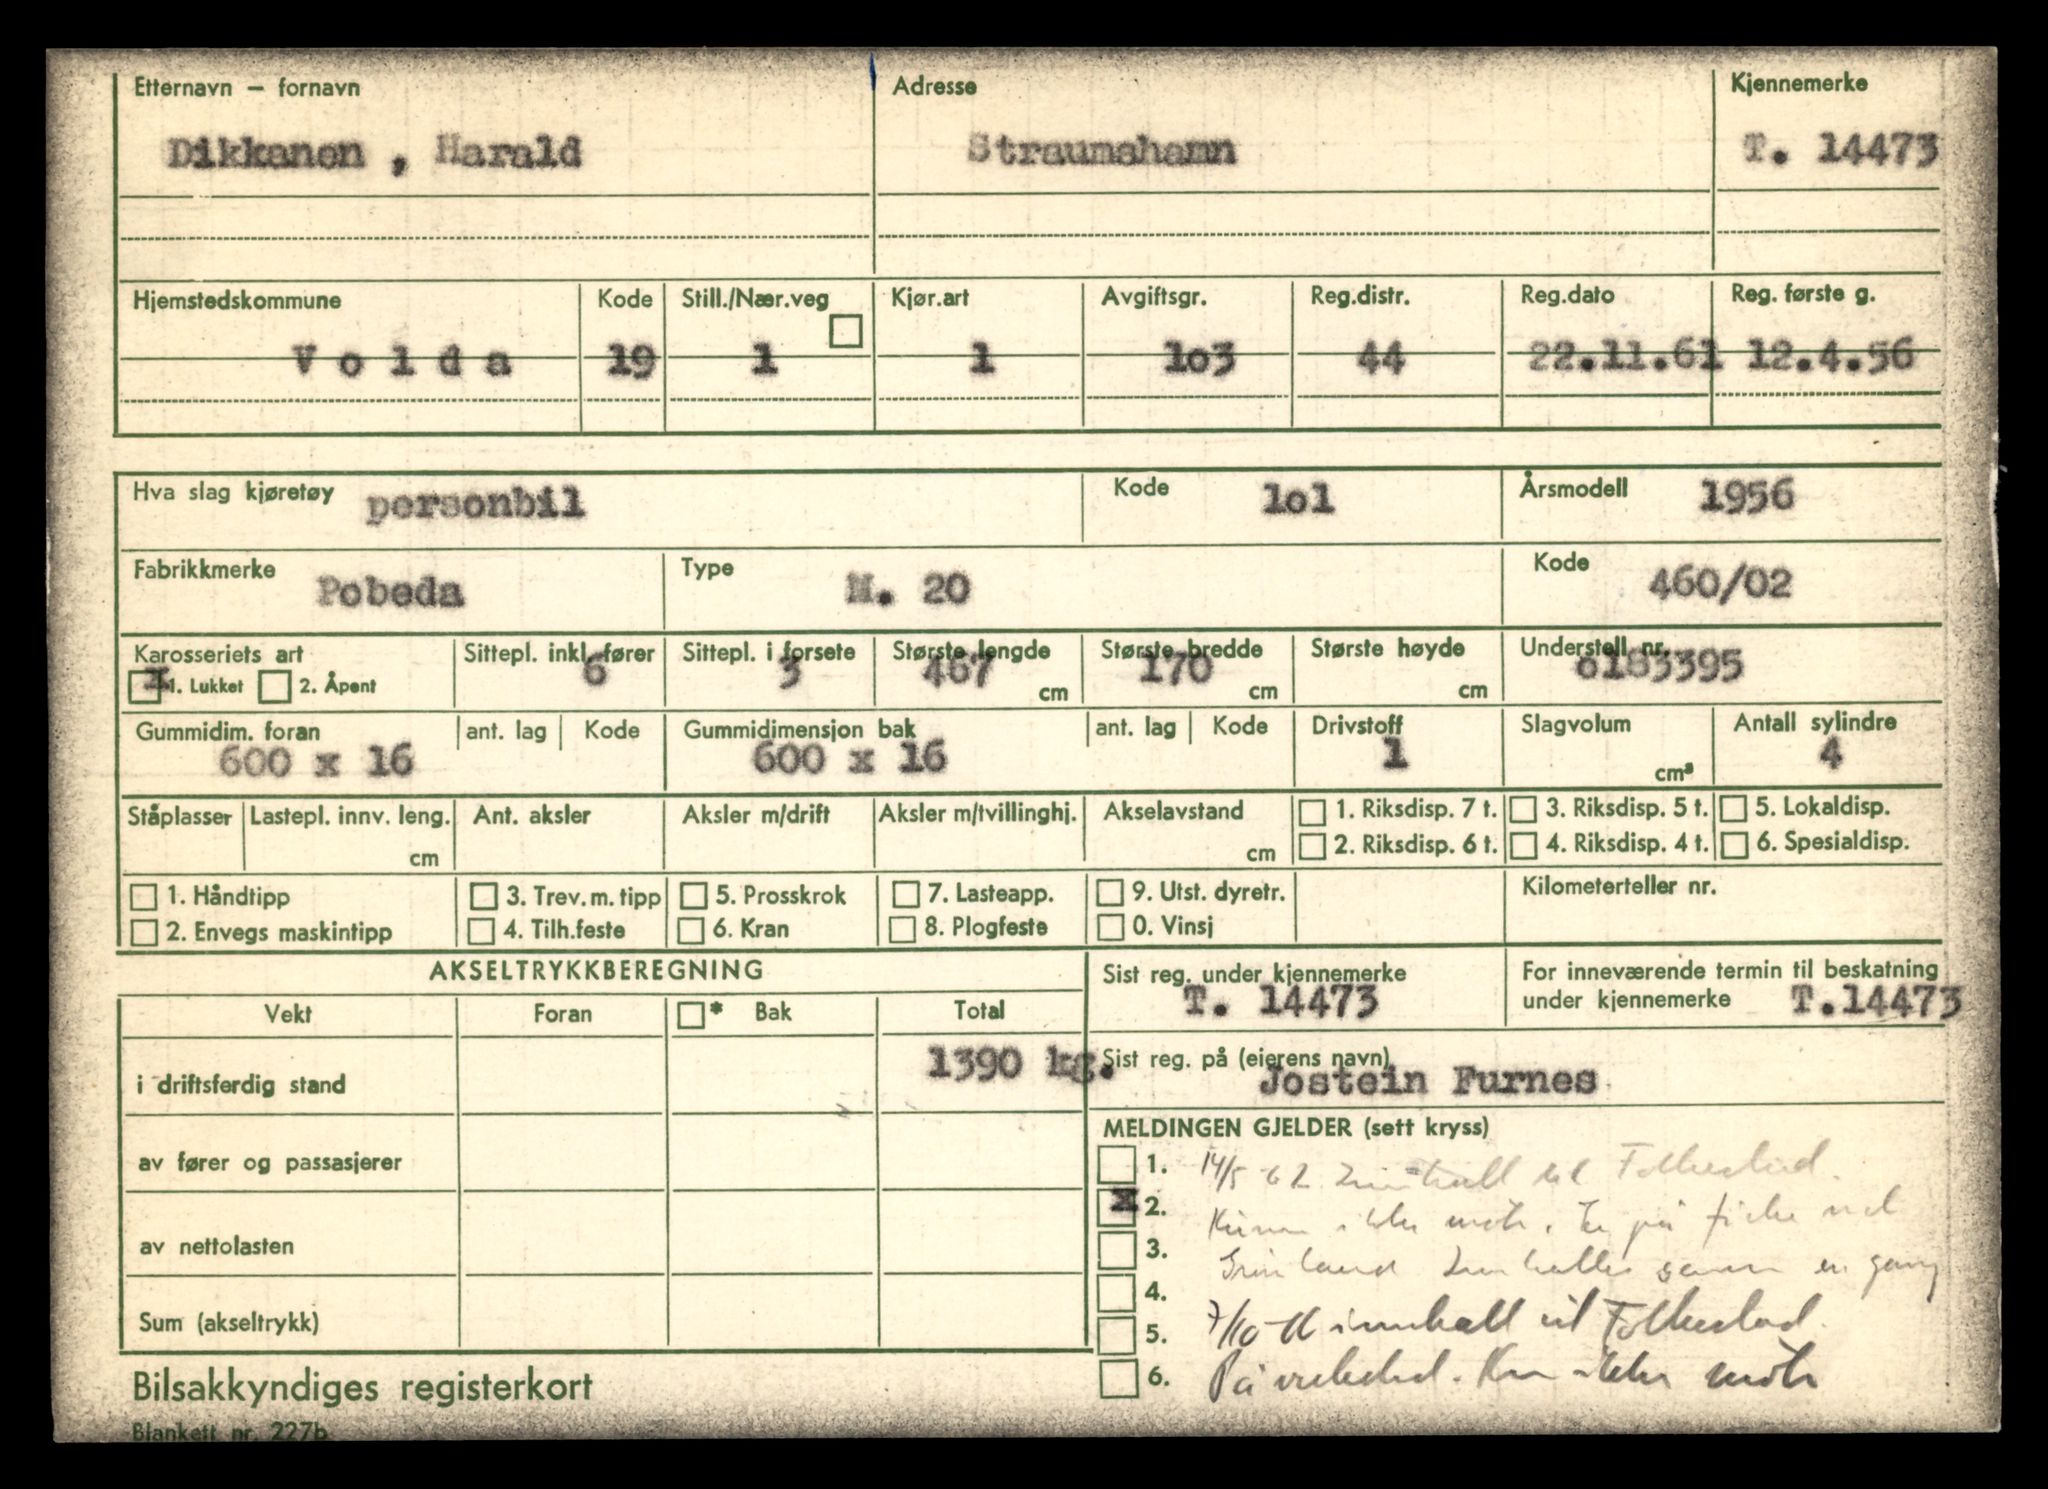 Etternavn – fornavn Adresse Kjennemerke
Dikkanen , Harald Straumshamn T. 14473
Hjemstedskommune Kode Still./Nær.veg Kjør.art Avgiftsgr. Reg.distr. Reg.dato Reg. første g.
V o l d a 19 1 1 1o3 44 22.11.61 12.4.56
Hva slag kjøretøy personbil Kode 1o1 Årsmodell 1956
Fabrikkmerke Pobeda Type M. 20 Kode 460/02
Karosseriets art Sittepl. inkl. fører Sittepl. i forsete Største lengde Største bredde Største høyde Understell nr.
x 1. Lukket 2. Åpent 6 3 467 cm 170 cm cm 6183395
Gummidim. foran ant. lag Kode Gummidimensjon bak ant. lag Kode Drivstoff Slagvolum Antall sylindre
600 x 16 600 x 16 1 cm³ 4
Ståplasser Lastepl. innv. leng. Ant. aksler Aksler m/drift Aksler m/tvillinghj. Akselavstand 1. Riksdisp. 7 t. 3. Riksdisp. 5 t. 5. Lokaldisp.
cm cm 2. Riksdisp. 6 t. 4. Riksdisp. 4 t. 6. Spesialdisp.
1. Håndtipp 3. Trev. m. tipp 5. Prosskrok 7. Lasteapp. 9. Utst. dyretr. Kilometerteller nr.
2. Envegs maskintipp 4. Tilh.feste 6. Kran 8. Plogfeste 0. Vinsj
AKSELTRYKKBEREGNING Sist reg. under kjennemerke For inneværende termin til beskatning
T. 14473 under kjennemerke T.14473
Vekt Foran * Bak Total
i driftsferdig stand 1390 kg. Sist reg. på (eierens navn)
Jostein Furnes
MELDINGEN GJELDER (sett kryss)
av fører og passasjerer 1. 14/5-62 Innkall til Folkestad.
x 2. Kunn ikke møte. Er på fiske ved
av nettolasten 3. Grønland Innkalles senere en gang
4.
Sum (akseltrykk) 5. 7/10 innkall til Folkestad.
6. På Kan ikke møte
Bilsakkyndiges registerkort
Blankett nr. 227b